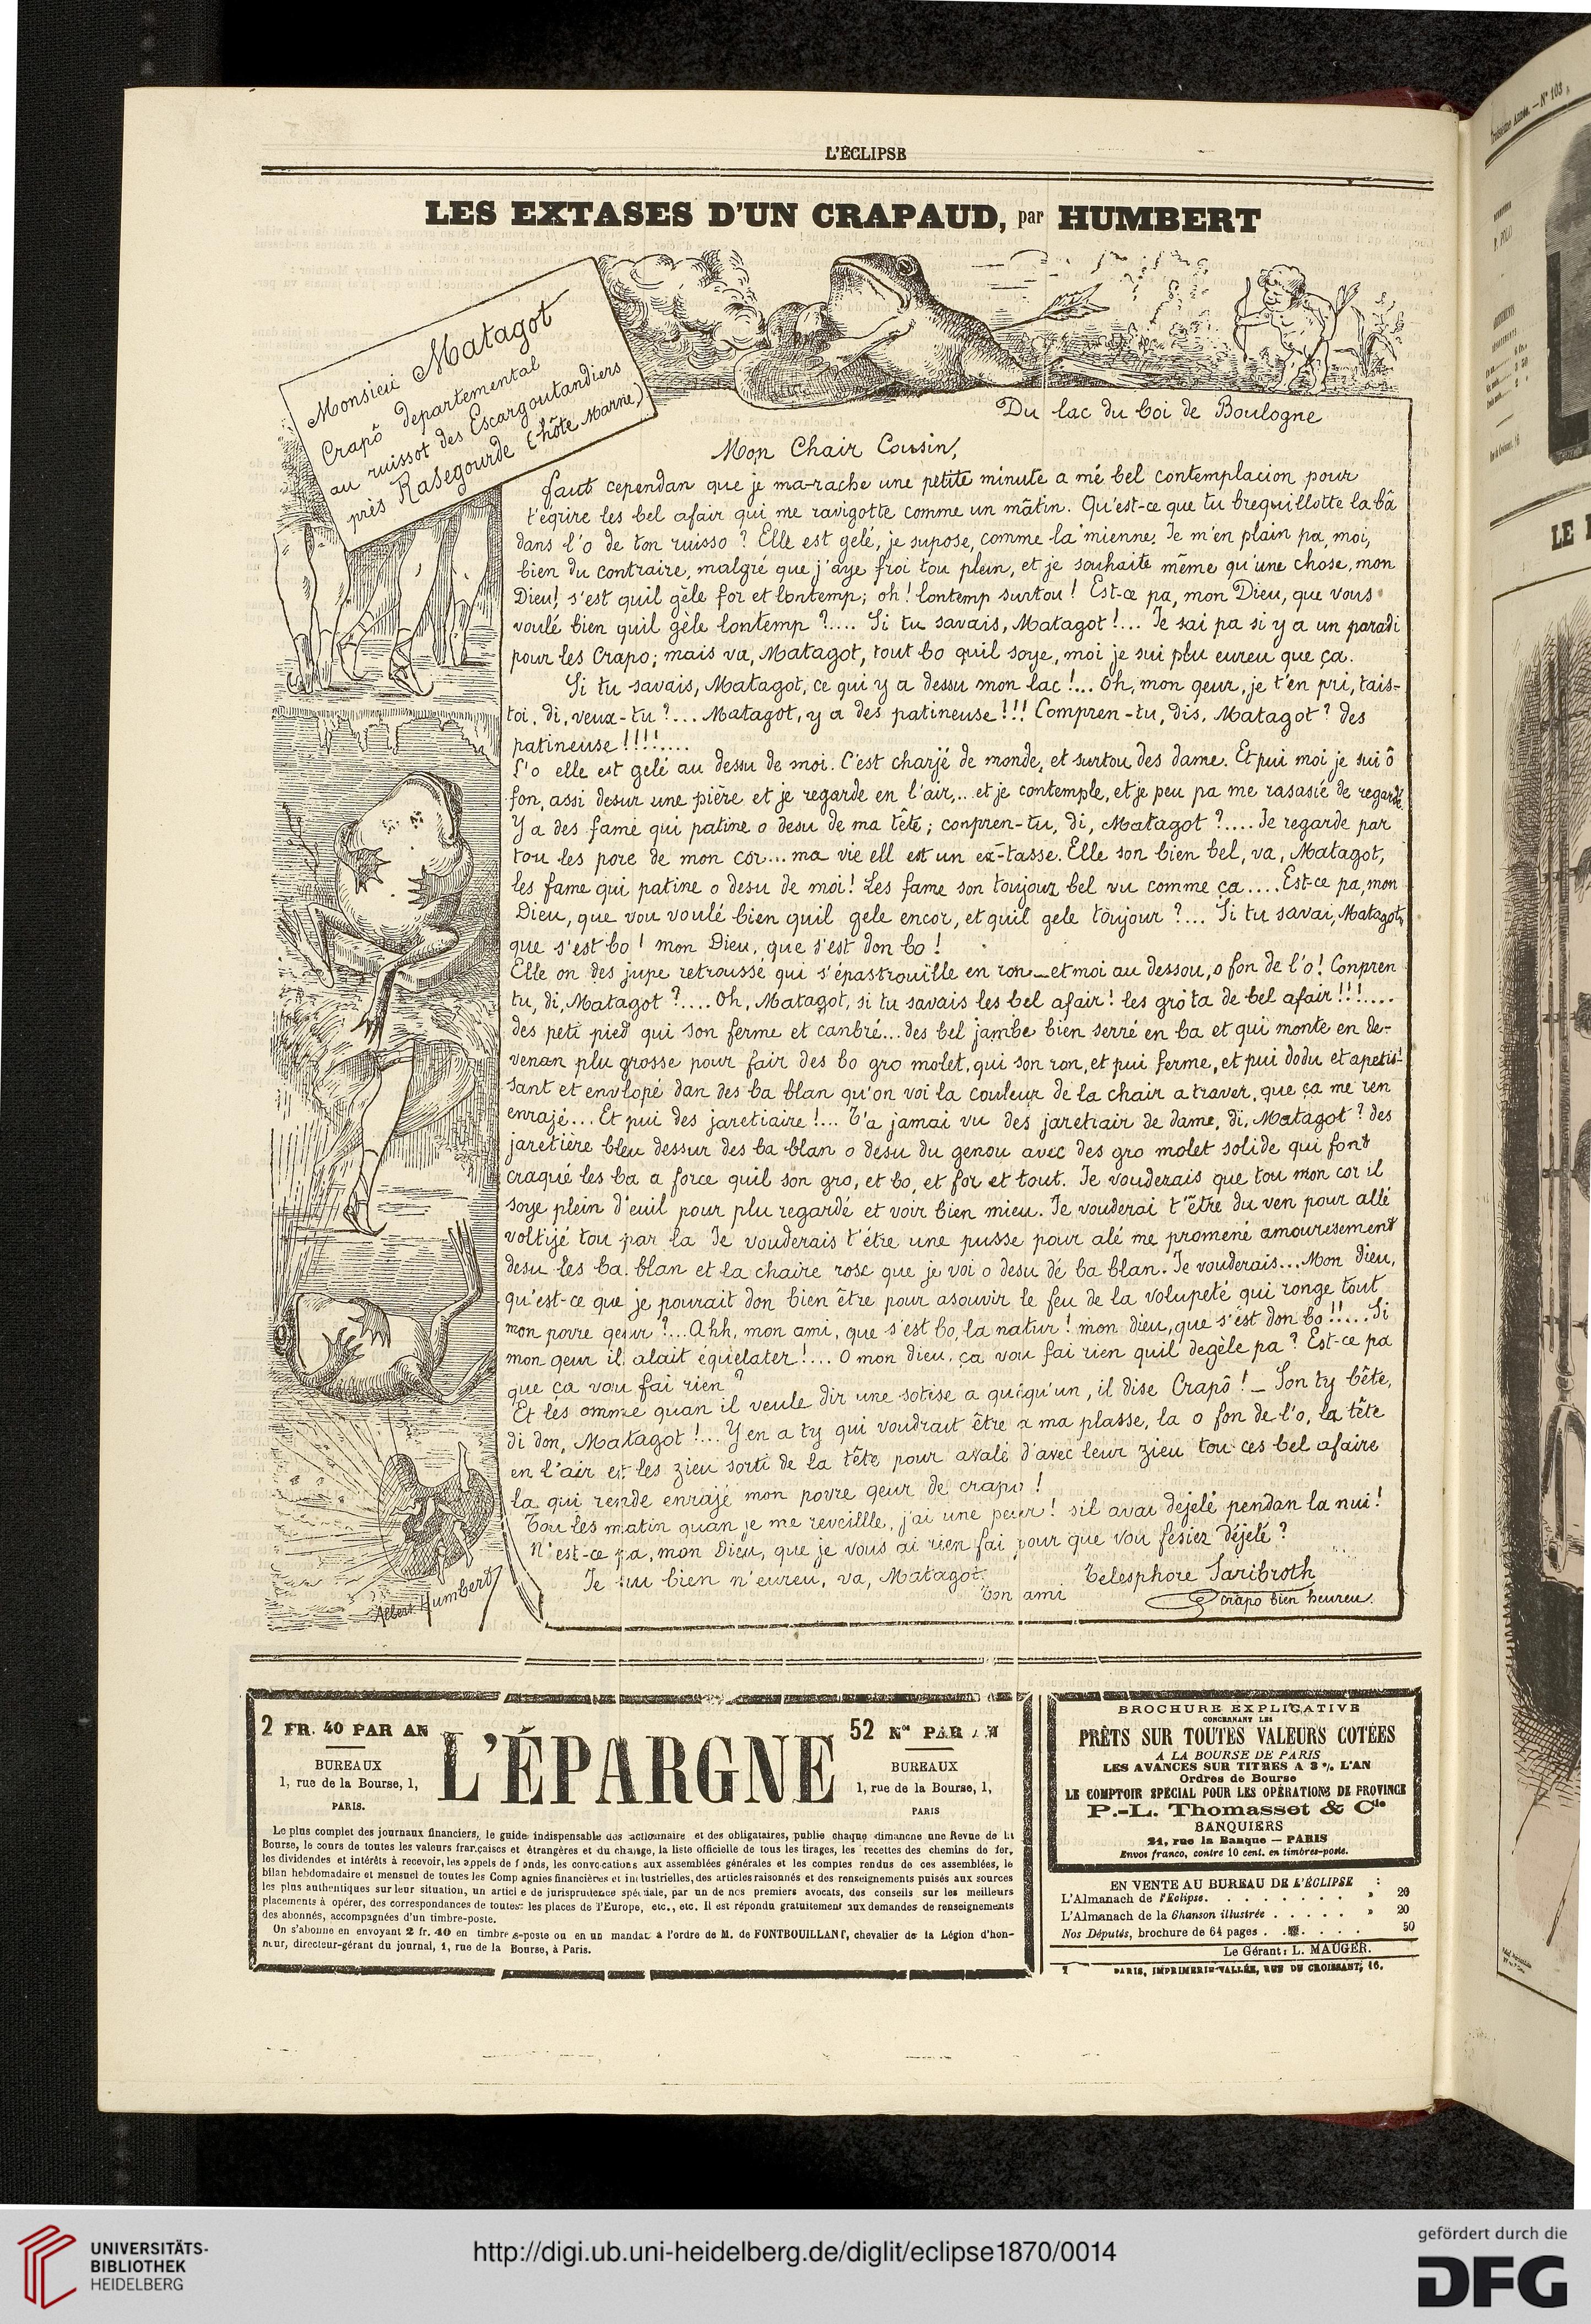 L'ÉCLIPSE
LES EXTASES D'UN CRAPAUD, par HUMBERT
Monsieu Matagot
Crapô departemental
au ruissot des Escargoutandiers
près Rasegourde (hôte Marne)
Du lac du boi de Boulogne
Mon Chair Cousin,
faut cependan que je ma-rache une petite minute a mé bel contemplacion pour
t'eqrire les bel afair qui me ravigotte comme un mâtin. Qu'est-ce que tu brequillotte la bâ
dans l'o de ton ruisso ? Elle est gelé, je supose, comme la mienne. Je m'en plain pa, moi,
bien du contraire, malgré que j'aye froi tou plein, et je souhaite même qu'une chose, mon
Dieu! s'est quil gèle for et lontemp; oh! lontemp surtou! Est-ce pa, mon Dieu, que vous
voulé bien quil gèle lontemp ?.... Si tu savais, Matagot!... Je sai pa si y a un paradi
pour les Crapo; mais va, Matagot, tout bo quil soye, moi je sui plu eureu que ça.
Si tu savais, Matagot, ce qui y a dessu mon lac !... Oh, mon qeur, je t'en pri, tais-
toi, di, veux-tu ?... Matagot, y a des patineuse!!! Compren-tu, dis, Matagot? des
patineuse!!!!....
L'o elle est gelé au dessu de moi. C'est charjé de monde, et surtou des dame. Et pui moi je sui ô
fon, assi desur une pière et je regarde en l'air,.. et je contemple, et je peu pa me rasasié de regardé
Y a des fame qui patine o desu de ma tête; conpren-tu, di, Matagot ?.... Je regarde par
tou les pore de mon cor... ma vie ell est un ex-tasse. Elle son bien bel, va, Matagot,
les fame qui patine o desu de moi! Les fame son toujour bel vu comme ça.... Est-ce pa, mon
Dieu, que vou voulé bien quil gele encor, et quil gele toujour ?... Si tu savai, Matagot,
que s'est bo! mon Dieu, que s'est don bo!
Elle on des jupe retroussé qui s'épastrouille en ron_et moi au dessou, o fon de l'o! Conpren
tu, di, Matagot ?.... Oh, Matagot, si tu savais les bel afair! les gro ta de bel afair!!!....
des peti pied qui son ferme et canbré... des bel jambe bien serré en ba et qui monte en de-
venan plu grosse pour fair des bo gro molet, qui son ron, et pui ferme, et pui dodu et apetis-
sant et envlopé dan des ba blan qu'on voi la couleur de la chair a traver, que ça me ren
enrajé... Et pui des jaretiaire!... T'a jamai vu des jaretiair de dame, di, Matagot ? des
jaretière bleu dessur des ba blan o desu du genou avec des gro molet solide qui font
craqué les ba a force quil son gro, et bo, et for et tout. Je vouderais que tou mon cor il
soye plein d'euil pour plu regardé et voir bien mieu. Je vouderai t'être du ven pour allé
voltijé tou par la Je vouderais t'étre une pusse pour alé me promené amouresement
desu les ba blan et la chaire rose que je voi o desu dé ba blan. Je vouderais... Mon Dieu,
qu'est-ce que je pourait don bien être pour asouvir le feu de la volupeté qui ronge tout
mon povre qeur ?... Ahh, mon ami, que s'est bo, la natur! mon dieu, que s'est don bo!!.... Si
mon qeur il alait équelater!... O mon dieu, ça vou fai rien quil degèle pa ? Est-ce pa
que ça vou fai rien ?
Et les omme quan il veule dir une sotise a quéqu'un, il dise Crapô! _ Son ty bête,
di don, Matagot !... Y en a ty qui voudrait être a ma plasse, la o fon de l'o, la tête
en l'air et les zieu sorti de la tête pour avalé d'avec leur zieu tou ces bel afaire
la qui rende enrajé mon povre qeur de crapo!
Tou les matin quan je me reveillle, j'ai une peur! sil avai dejelé pendan la nui!
N'est-ce pa, mon Dieu, que je vous ai rien fai pour que vou fesiez déjelé ?
Je sui bien n'eureu, va, Matagot.
Ton ami
Telesphore Saribroth
crapo bien heureu.
Albert Humbert
2 FR. 40 PAR AN
BUREAUX
1, rue de la Bourse, 1,
PARIS.
L'ÉPARGNE
52 Nos PAR AN
BUREAUX
1, rue de la Bourse, 1,
PARIS
Le plus complet des journaux financiers, le guide indispensable des actionnaire et des obligataires, publie chaque dimanche une Revue de la
Bourse, le cours de toutes les valeurs françaises et étrangères et du change, la liste officielle de tous les tirages, les recettes des chemins de fer,
les dividendes et intérêts à recevoir, les appels de fonds, les convocations aux assemblées générales et les comptes rendus de ces assemblées, le
bilan hebdomadaire et mensuel de toutes les Compagnies financières et industrielles, des articles raisonnés et des renseignements puisés aux sources
les plus authentiques sur leur situation, un article de jurisprudence spéciale, par un de nos premiers avocats, des conseils sur les meilleurs
placements à opérer, des correspondances de toutes les places de l'Europe, etc., etc. Il est répondu gratuitement aux demandes de renseignements
des abonnés, accompagnées d'un timbre-poste.
On s'abonne en envoyant 2 fr. 40 en timbres-poste ou en un mandat à l'ordre de M. de FONTBOUILLANT, chevalier de la Légion d'hon-
neur, directeur-gérant du journal, 1, rue de la Bourse, à Paris.
BROCHURE EXPLICATIVE
CONCERNANT LES
PRÊTS SUR TOUTES VALEURS COTÉES
A LA BOURSE DE PARIS
LES AVANCES SUR TITRES A 3 % L'AN
Ordres de Bourse
LE COMPTOIR SPÉCIAL POUR LES OPÉRATIONS DE PROVINCE
P.-L. Thomasset & Cie
BANQUIERS
21, rue la Banque — PARIS
Envoi franco, contre 10 cent. en timbres-poste.
EN VENTE AU BUREAU DE L'ÉCLIPSE :
L'Almanach de l'Eclipse. . . . . . . . » 20
L'Almanach de la Chanson illustrée . . . . . » 20
Nos Députés, brochure de 64 pages . . . . . 50
Le Gérant: L. MAUGER.
PARIS, IMPRIMERIE VALLÉE, RUE DU CROISSANT, 16.
Troisième Année. — N° 103
LE
UNIVERSITÄTS-
BIBLIOTHEK
HEIDELBERG
http://digi.ub.uni-heidelberg.de/diglit/eclipse1870/0014
gefördert durch die
DFG